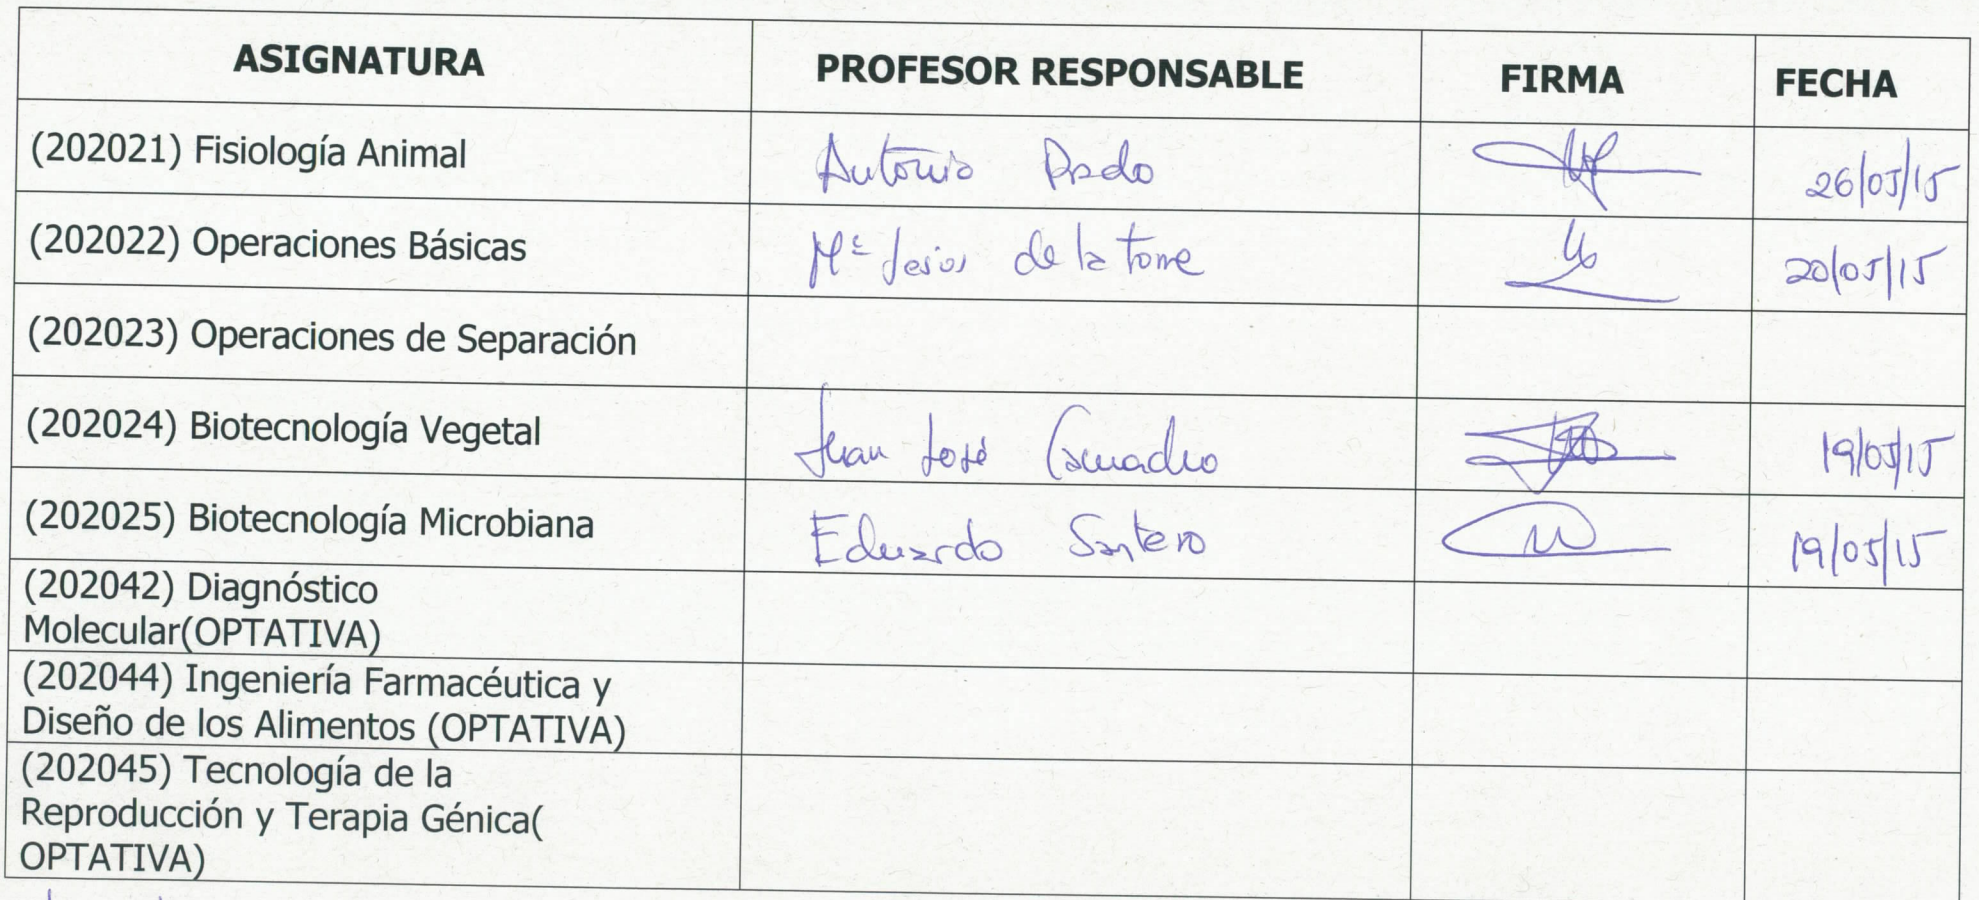 ASIGNATURA PROFESOR RESPONSABLE FIRMA FECHA
(202021) Fisiología Animal Antonio Prado 26/05/15
(202022) Operaciones Básicas Mª Jesús de la Torre 20/05/15
(202023) Operaciones de Separación
(202024) Biotecnología Vegetal Juan José 19/05/15
(202025) Biotecnología Microbiana Eduardo Santero 19/05/15
(202042) Diagnóstico
Molecular(OPTATIVA)
(202044) Ingeniería Farmacéutica y
Diseño de los Alimentos (OPTATIVA)
(202045) Tecnología de la
Reproducción y Terapia Génica(
OPTATIVA)